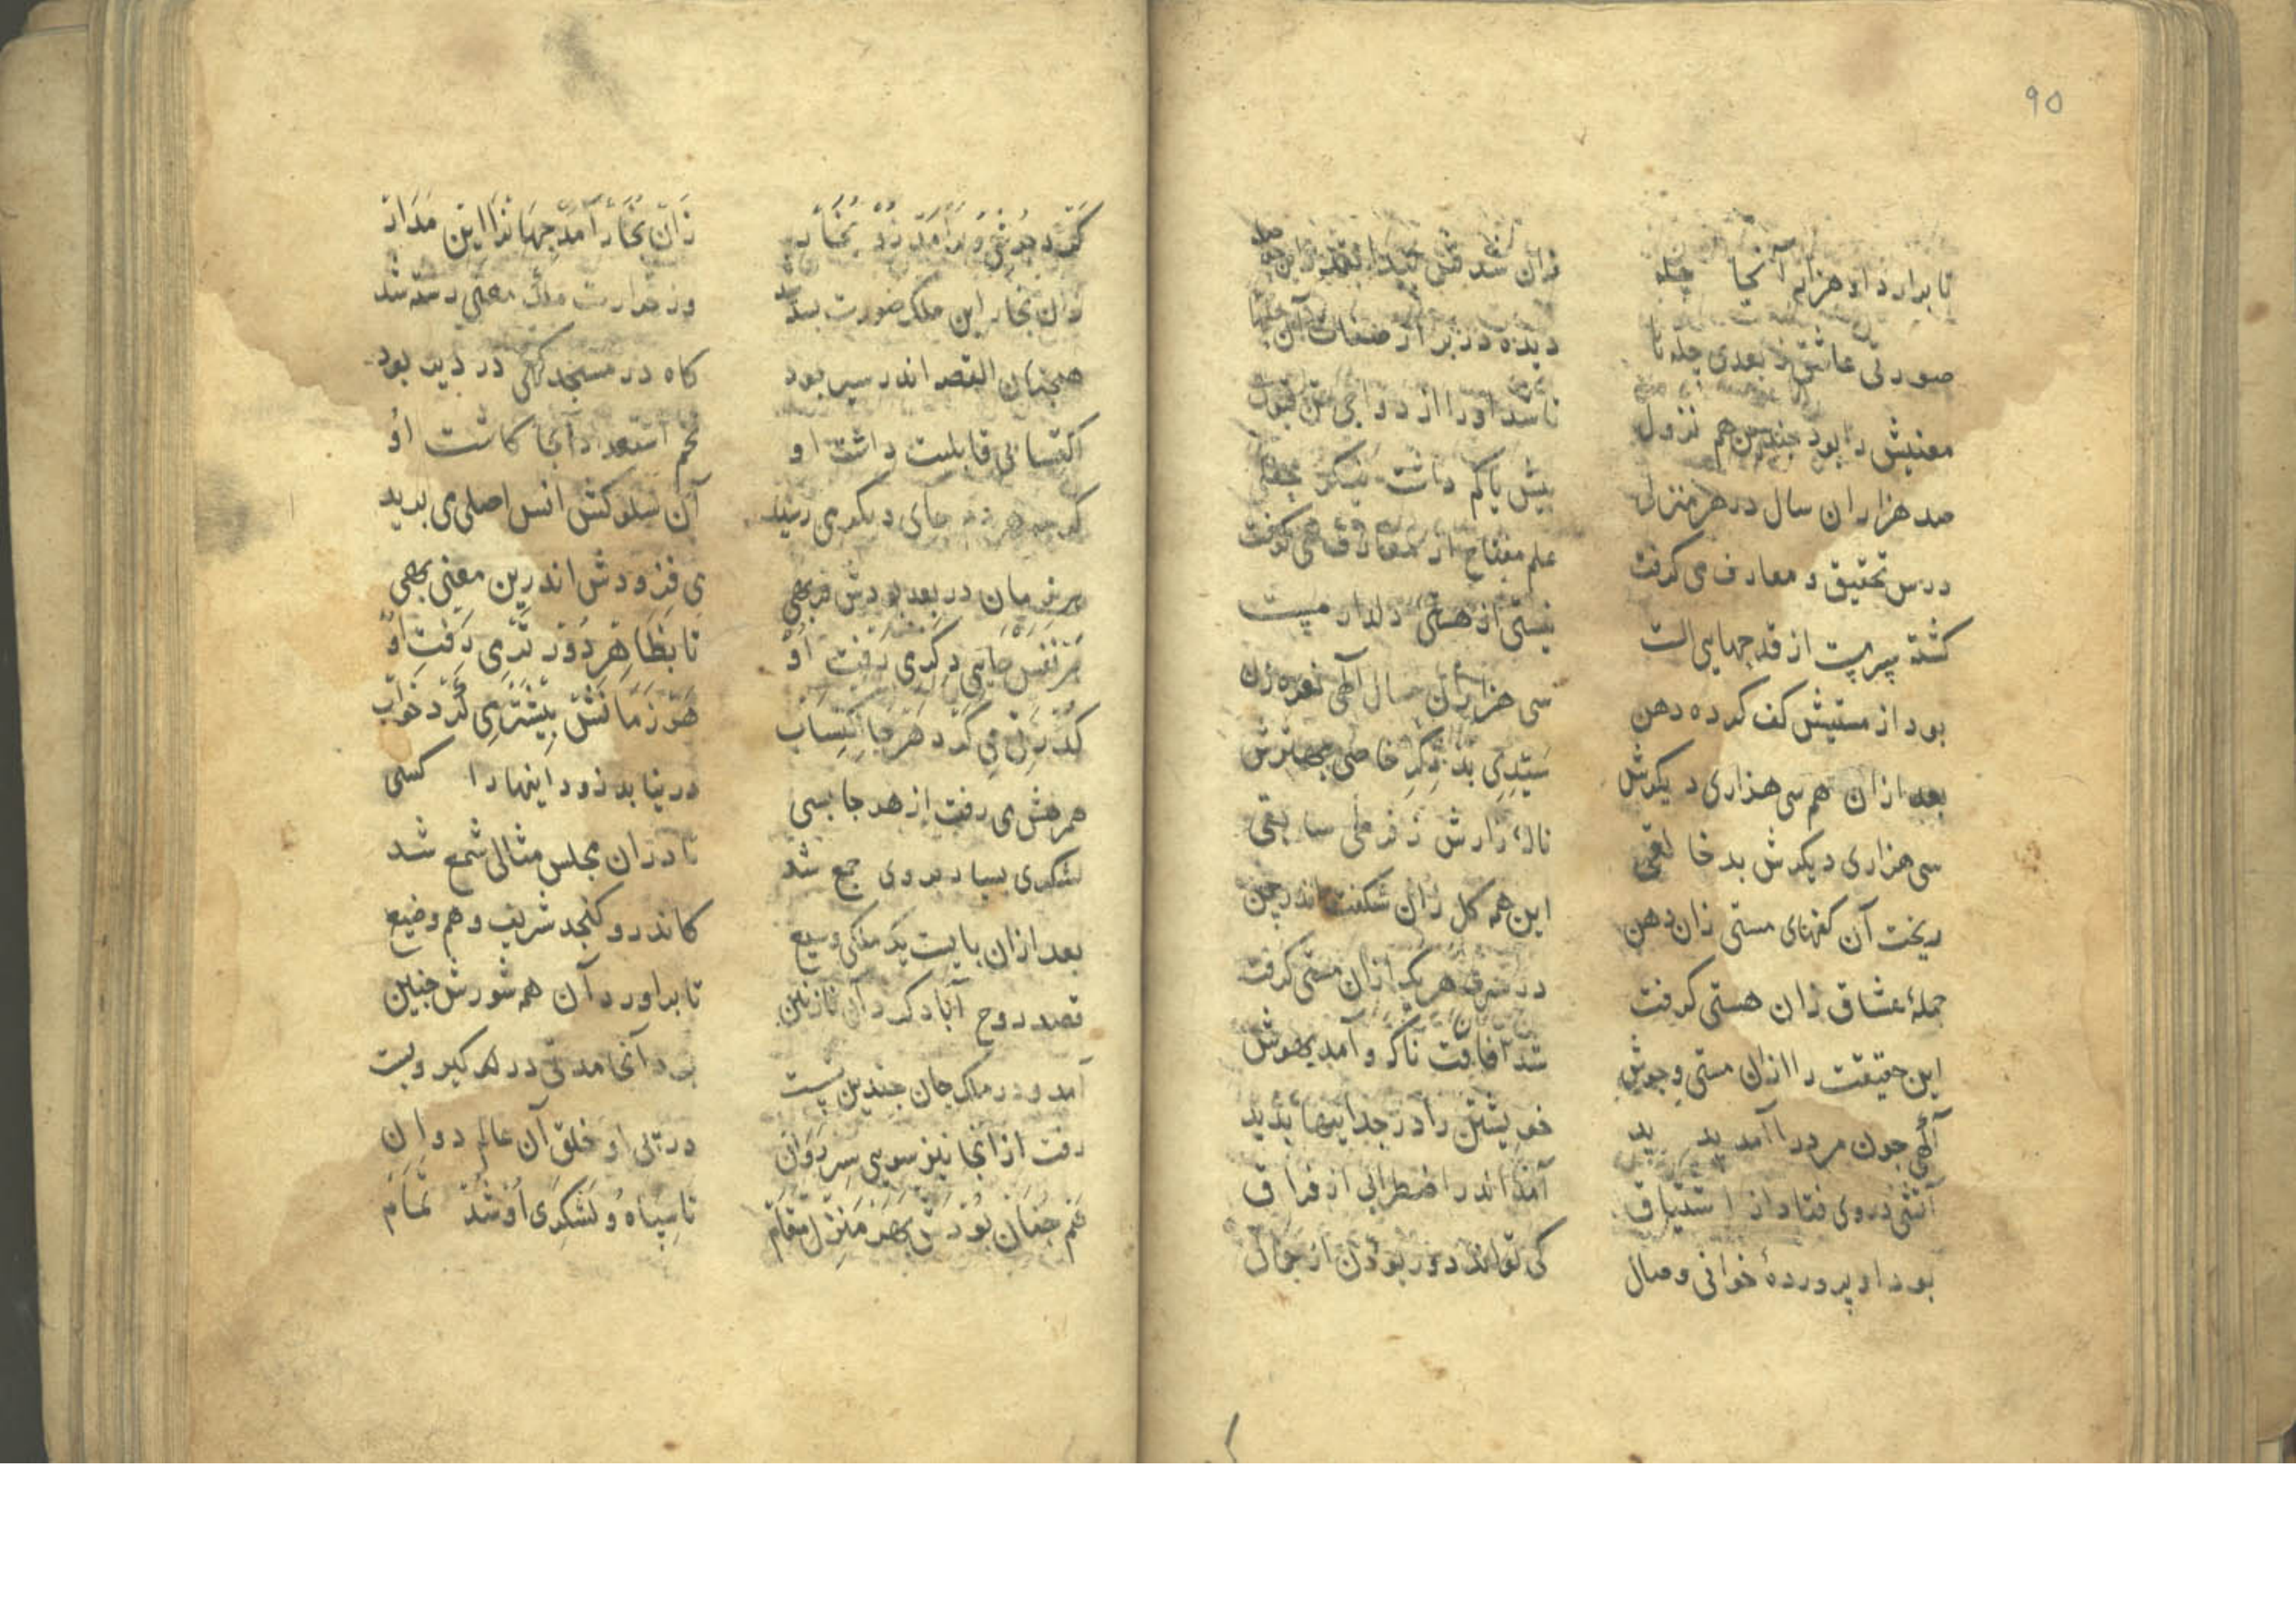 ۹۵
تا برارد او هزار آنجا چله
زان شد
صورتی عاشق ز بعدی چله تا
دیده در زیر از صفات آن
معنیش را بود چندین هم نزول
تا شد او را از در
صد هزاران سال در هر منزلی
بیش یا کم داشت
درس تحقیق و معارف می کرفت
علم مفتاح از معارف می کرفت
کشته پیر مست از قدحهایی الست
نیستی از هستئ دلدار مست
بود از مستیش کف کرده دهن
سی هزاران سال آهی نعره زن
بعد ازان هم سی هزاری دیکرش
ستدی بد ذکر خاصی
سی هزاری دیکرش بد خالقی
نالهٔ زارش ز فرملی سابقی
ریخت آن کفهای مستی زان دهن
این همه کل زان شکفت اندر چمن
جملهٔ عشاق زان هستی کرفت
در هریک ازان مستی کرفت
این حقیقت را ازان مستی و جوش
شد افاقت ناکه و آمد بهوش
آکهی جون مر درا آمد بدید
خویشتن را در جداییها بدید
آتشی در وی فتاد از اشتیاق
آمد اندر اضطرابی از فراق
بود او پروردهٔ خوانی وصال
کی تواند دور بودن از جمال
کرد جوشی و برامد زد بخار
زان بخار آمد جهانرا این مدار
زان بخار این ملک صورت بسته شد
وز حرارت ملک معنی رسته شد
همجنان القصه اندر سیر بود
کاه در مسجد کهی در دیر بود
اکتسابی قابلیت داشت او
تخم استعداد آنجا کاشت او
کرجه هر دم جای دیکر می رسید
آن سلوکش انس اصلی می برید
هر زمان در بعد بودش فربهی
می فزودش اندرین معنی بهی
هر نفس جایی دکری رفت او
تا بظاهر دور تری رفت او
کذرتی می کرد هرجا اکتساب
هر زمانش بیشتر می کرد خواب
همرهش می رفت از هر جا بسی
در نیابد زود اینها را کسی
لشکری بسیار بروی جمع شد
تا دران مجلس مثالی شمع شد
بعد ازان بایست یک ملکی وسیع
کاندرو کنجد شریف و هم وضیع
قصد روح آباد کرد آن نازنین
تا براورد آن همه شورش جنین
آمد و در ملک جان جندین نشست
آنجا مدتی در کیر و بست
رفت از آنجا نیز سویی سر روان
در تنی او خلق آن عالم دوان
هم جنان بودش بهر منزل مقام
تا سپاه و لشکری او شد تمام